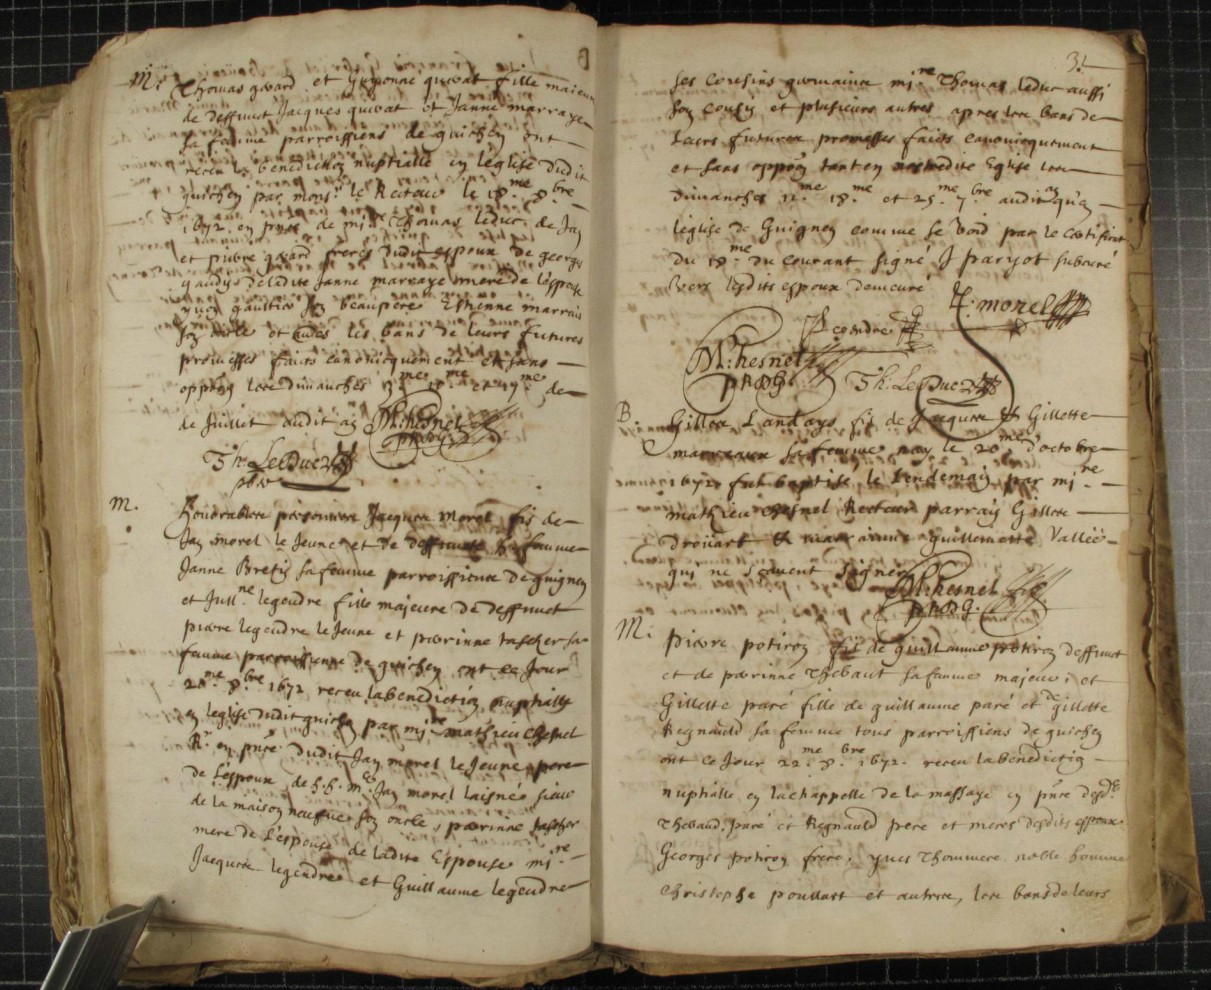 M. Thomas gerard et Guyonne quivat fille majeure
de deffunct Jacques quivat et Janne marraye
sa femme parroissiens de guichen ont
receu la benediction nuptialle en leglise dudit
guichen par monsr le Recteur le 18me 8bre
1672 en pnce de mire Thomas leduc, de Jan
et pierre gerard freres dudit espoux de georges
gaudy de ladite Janne marraye mere de lespouse
yves gaultier son beaupere Estienne marraie
son oncle et autres les bans de leurs futures
promesses faits canonicquement et sans
oppon les dimanches me me me de
de Juillet audit an M: chesnel
Th. LeDuc
pbre
M. honorables personnes Jacques Morel fils de
Jan morel le Jeune et de
Janne Bretin sa femme parroissiens de guignen
et Jullne legendre fille majeure de deffunct
pierre legendre le Jeune et perrinne tascher sa
femme parroissienne de guichen ont ce Jour
8bre 1672 receu la benediction nuptialle
en leglise dudit guichen par mire mathieu chesnel
Rr en pnce dudit Jan morel le Jeune pere
de Lespoux, de h. h. Me Jan morel laisné sieur
de la maison neufve son oncle, perrinne tascher
mere de Lespouse de ladite Espouse mire
Jacques legendre et Guillaume legendre
31
ses cousins germains mire Thomas leduc aussi
son cousin et plusieurs autres apres les bans de
leurs futures promesses faits canonicquement
et sans oppon tant en nostredite Eglise les
dimanches 11me 18me et 25me 7bre audit an qu'en
leglise de Guignen comme se void par le certificat
du 18me du courant signé J paryot subcuré
vers lesdits espoux demeuré
morel
M: chesnel
Th. LeDuc
B. Gilles Landays fils de Jacques et Gillette
marceaux sa femme nay le 20me d'octobre
1672 fut baptisé le lendemain par mire
mathieu chesnel Recteur parrain Gilles
Droüart et marainne guillemette Vallée
qui ne scavent signer
M: chesnel
M. pierre potiron fils de guillaume potiron deffunct
et de perrinne Thebaut sa femme majeur; et
Gillette paré fille de guillaume paré et de gillette
Regnauld sa femme tous parroissiens de guichen
ont ce Jour 22me 8bre 1672 receu la benediction
nuptialle en la chappelle de la massaye en pnce desdts
Thebaud, paré et Regnauld pere et meres desdits espoux
Georges potiron frere, yves Thommere noble homme
Christophe poullart et autres, les bans de leurs